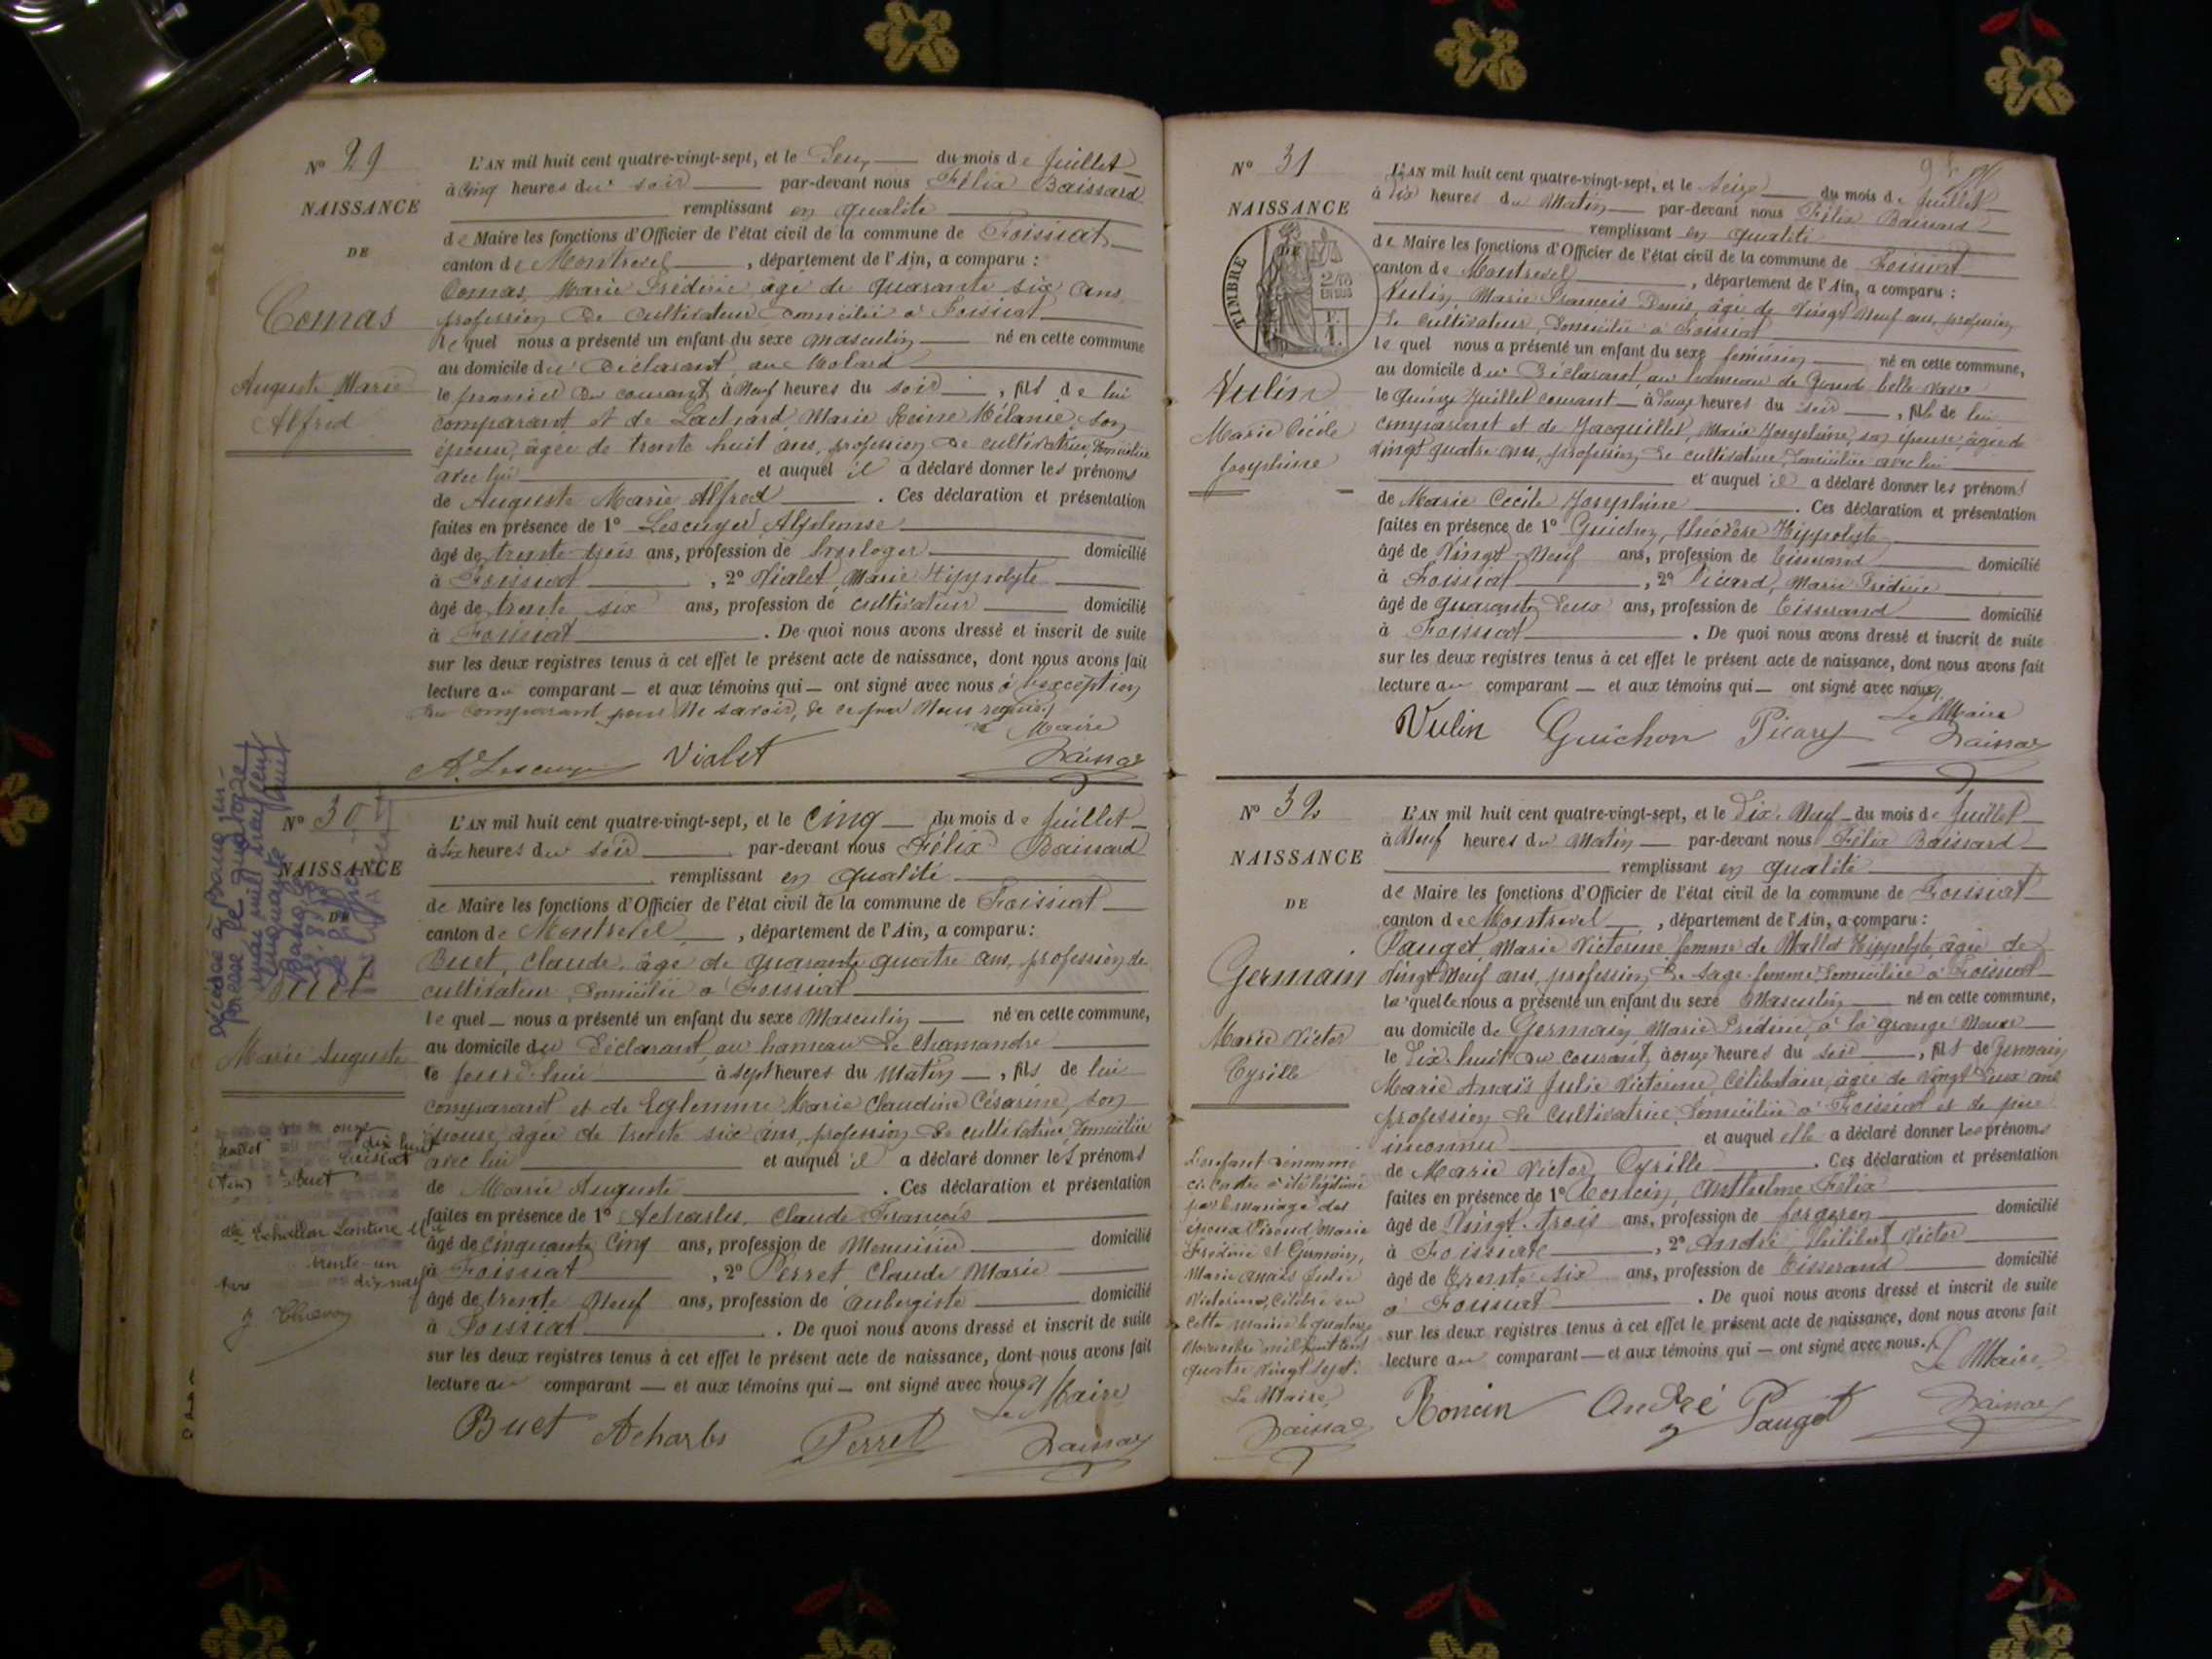 N° 29
NAISSANCE
DE
Comas
Auguste Marie
Alfred
L'AN mil huit cent quatre-vingt-sept, et le Deux du mois de Juillet
à Cinq heures du soir par-devant nous Félix Baissard
remplissant en qualité
de Maire les fonctions d'Officier de l'état civil de la commune de Foissiat
canton de Montrevel, département de l'Ain, a comparu :
Comas, Marie Frédéric, âgé de quarante six ans,
profession de cultivateur domicilié à Foissiat
lequel nous a présenté un enfant du sexe masculin né en cette commune
au domicile du Déclarant, au Molard
le premier du courant à Neuf heures du soir, fils de lui
comparant et de Marie Reine Mélanie, son
épouse, âgée de trente huit ans, profession de cultivatrice, domiciliée
avec lui et auquel il a déclaré donner les prénoms
de Auguste Marie Alfred. Ces déclaration et présentation
faites en présence de 1° Lescuyer Alphonse
âgé de trente trois ans, profession de horloger domicilié
à Foissiat, 2° Vialet, Marie Hippolyte
âgé de trente six ans, profession de cultivateur domicilié
à Foissiat. De quoi nous avons dressé et inscrit de suite
sur les deux registres tenus à cet effet le présent acte de naissance, dont nous avons fait
lecture au comparant et aux témoins qui ont signé avec nous à l'exception
du comparant pour ne savoir, de ce par nous requis,
Le Maire
A. Lescuyer Vialet Baissard
N° 30
NAISSANCE
DE
Buet
Marie Auguste
L'AN mil huit cent quatre-vingt-sept, et le Cinq du mois de Juillet
à six heures du soir par-devant nous Félix Baissard
remplissant en qualité
de Maire les fonctions d'Officier de l'état civil de la commune de Foissiat
canton de Montrevel, département de l'Ain, a comparu :
Buet, Claude, âgé de quarante quatre ans, profession de
cultivateur, domicilié à Foissiat
lequel nous a présenté un enfant du sexe Masculin né en cette commune,
au domicile du Déclarant, au hameau de Chamandre
le jourd'hui à sept heures du Matin, fils de lui
comparant et de Marie Claudine Césarine, son
épouse, âgée de trente six ans, profession de cultivatrice domiciliée
avec lui et auquel il a déclaré donner les prénoms
de Marie Auguste. Ces déclaration et présentation
faites en présence de 1° Acharles, Claude François
âgé de cinquante cinq ans, profession de Menuisier domicilié
à Foissiat, 2° Perret, Claude Marie
âgé de trente Neuf ans, profession de aubergiste domicilié
à Foissiat. De quoi nous avons dressé et inscrit de suite
sur les deux registres tenus à cet effet le présent acte de naissance, dont nous avons fait
lecture au comparant et aux témoins qui ont signé avec nous
Le Maire
Buet Acharles Perret Baissard
N° 31
NAISSANCE
DE
TIMBRE
Vulin
Marie Cécile
Joséphine
L'AN mil huit cent quatre-vingt-sept, et le seize du mois de Juillet
à Dix heures du Matin par-devant nous Félix Baissard
remplissant en qualité
de Maire les fonctions d'Officier de l'état civil de la commune de Foissiat
canton de Montrevel, département de l'Ain, a comparu :
Vulin, Marie François Denis, âgé de Vingt Neuf ans, profession
de cultivateur, domicilié à Foissiat
lequel nous a présenté un enfant du sexe féminin né en cette commune,
au domicile du Déclarant, au hameau de
le Quinze Juillet courant à Onze heures du soir, fille de lui
comparant et de Jacquillet, Marie Josephine, son épouse, âgée de
Vingt quatre ans, profession de cultivatrice, domiciliée avec lui
et auquel il a déclaré donner les prénoms
de Marie Cécile Joséphine. Ces déclaration et présentation
faites en présence de 1° Guichon, Théodore Hippolyte
âgé de Vingt Neuf ans, profession de tisserand domicilié
à Foissiat, 2° Picard, Marie Frédéric
âgé de quarante deux ans, profession de tisserand domicilié
à Foissiat. De quoi nous avons dressé et inscrit de suite
sur les deux registres tenus à cet effet le présent acte de naissance, dont nous avons fait
lecture au comparant et aux témoins qui ont signé avec nous
Le Maire
Vulin Guichon Picard Baissard
N° 32
NAISSANCE
DE
Germain
Marie Victor
Cyrille
L'AN mil huit cent quatre-vingt-sept, et le Dix Neuf du mois de Juillet
à Neuf heures du Matin par-devant nous Félix Baissard
remplissant en qualité
de Maire les fonctions d'Officier de l'état civil de la commune de Foissiat
canton de Montrevel, département de l'Ain, a comparu :
Pauget, Marie Victorine femme de Mallet Hippolyte, âgée de
Vingt Neuf ans, profession de sage-femme domiciliée à Foissiat
laquelle nous a présenté un enfant du sexe Masculin né en cette commune,
au domicile de Germain Marie Frédéric, à la grange
le Dix-huit du courant, à onze heures du soir, fils de Germain
Marie Anaïs Julie Victorine, Célibataire, âgée de Vingt Deux ans
profession de cultivatrice domiciliée à Foissiat et de père
inconnu et auquel elle a déclaré donner les prénoms
de Marie Victor Cyrille. Ces déclaration et présentation
faites en présence de 1° Roncin, Anthelme Félix
âgé de Vingt trois ans, profession de forgeron domicilié
à Foissiat, 2° André Philibert Victor
âgé de Trente six ans, profession de tisserand domicilié
à Foissiat. De quoi nous avons dressé et inscrit de suite
sur les deux registres tenus à cet effet le présent acte de naissance, dont nous avons fait
lecture au comparant et aux témoins qui ont signé avec nous.
Le Maire,
Roncin André Pauget Baissard
L'enfant dénommé
ci-contre a été légitimé
par le mariage des
époux Piroud, Marie
Frédéric et Germain,
Marie Anaïs Julie
Victorine, célébré en
cette mairie le quatorze
Novembre mil huit cent
quatre vingt sept.
Le Maire,
Baissard